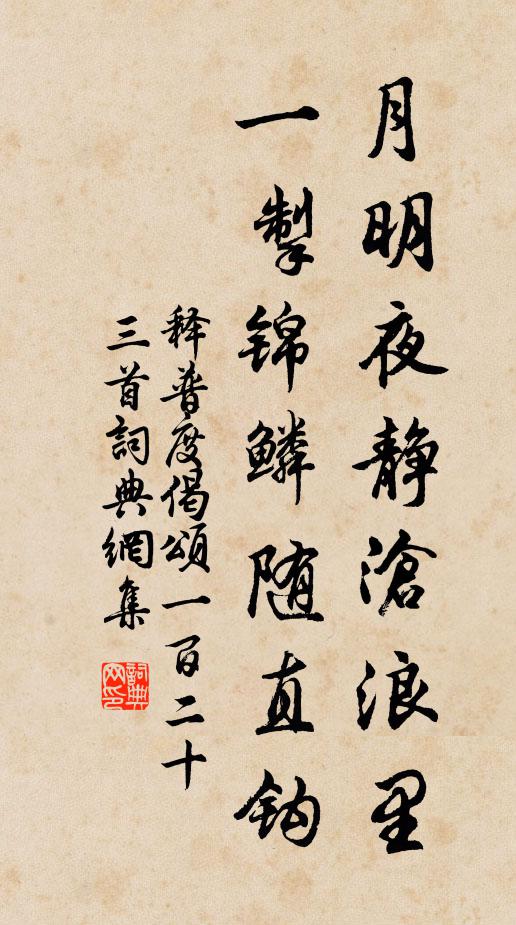 月明夜静滄浪里
一掣锦鳞随直钩
释普度偈頌一百二十
三首詞典網集
詞典
网印